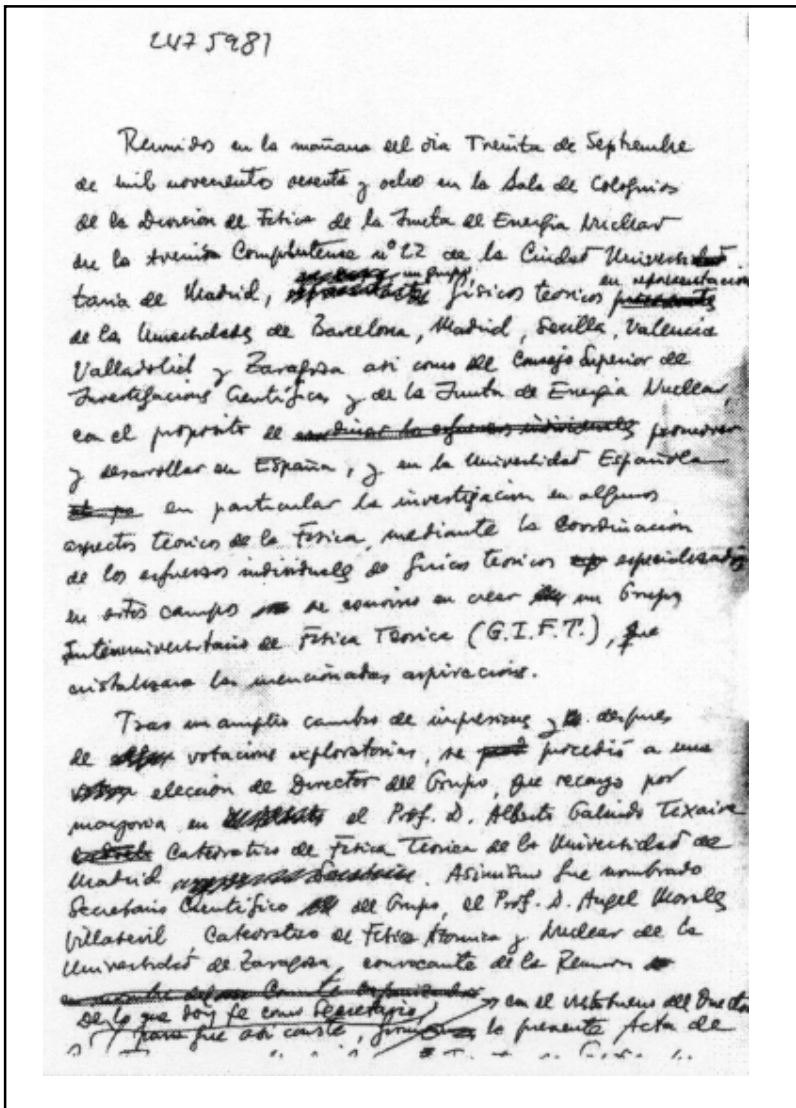 2475981
Reunidos en la mañana del dia Treinta de Septiembre
de mil novecientos sesenta y ocho en la Sala de Coloquios
de la Division de Fisica de la Junta de Energia Nuclear
de la Avenida Complutense nº 22 de la Ciudad Universi
taria de Madrid, un grupo, fisicos teoricos en representacion
de las Universidades de Barcelona, Madrid, Sevilla, Valencia
Valladolid y Zaragoza asi como del Consejo Superior de
Investigaciones Cientificas y de la Junta de Energia Nuclear,
con el proposito de coordinar los esfuerzos individuales promover
y desarrollar en España, y en la Universidad Española
en particular la investigacion en algunos
aspectos teoricos de la Fisica, mediante la coordinacion
de los esfuerzos individuales de fisicos teoricos especializados
en estos campos se convino en crear un Grupo
Interuniversitario de Fisica Teorica (G.I.F.T.), que
cristalizara las mencionadas aspiraciones.
Tras un amplio cambio de impresiones y despues
de votaciones exploratorias, se procedió a una
elección de Director del Grupo, que recayo por
mayoria en el Prof. D. Alberto Galindo Tixaire
Catedratico de Fisica Teorica de la Universidad de
Madrid. Asimismo fue nombrado
Secretario Cientifico del Grupo, el Prof. D. Angel Morales
Villasevil Catedratico de Fisica Atomica y Nuclear de la
Universidad de Zaragoza, convocante de la Reunion
en nombre del Comite
De lo que doy fe como Secretario, con el visto bueno del Director
Y para que asi conste, la presente Acta de